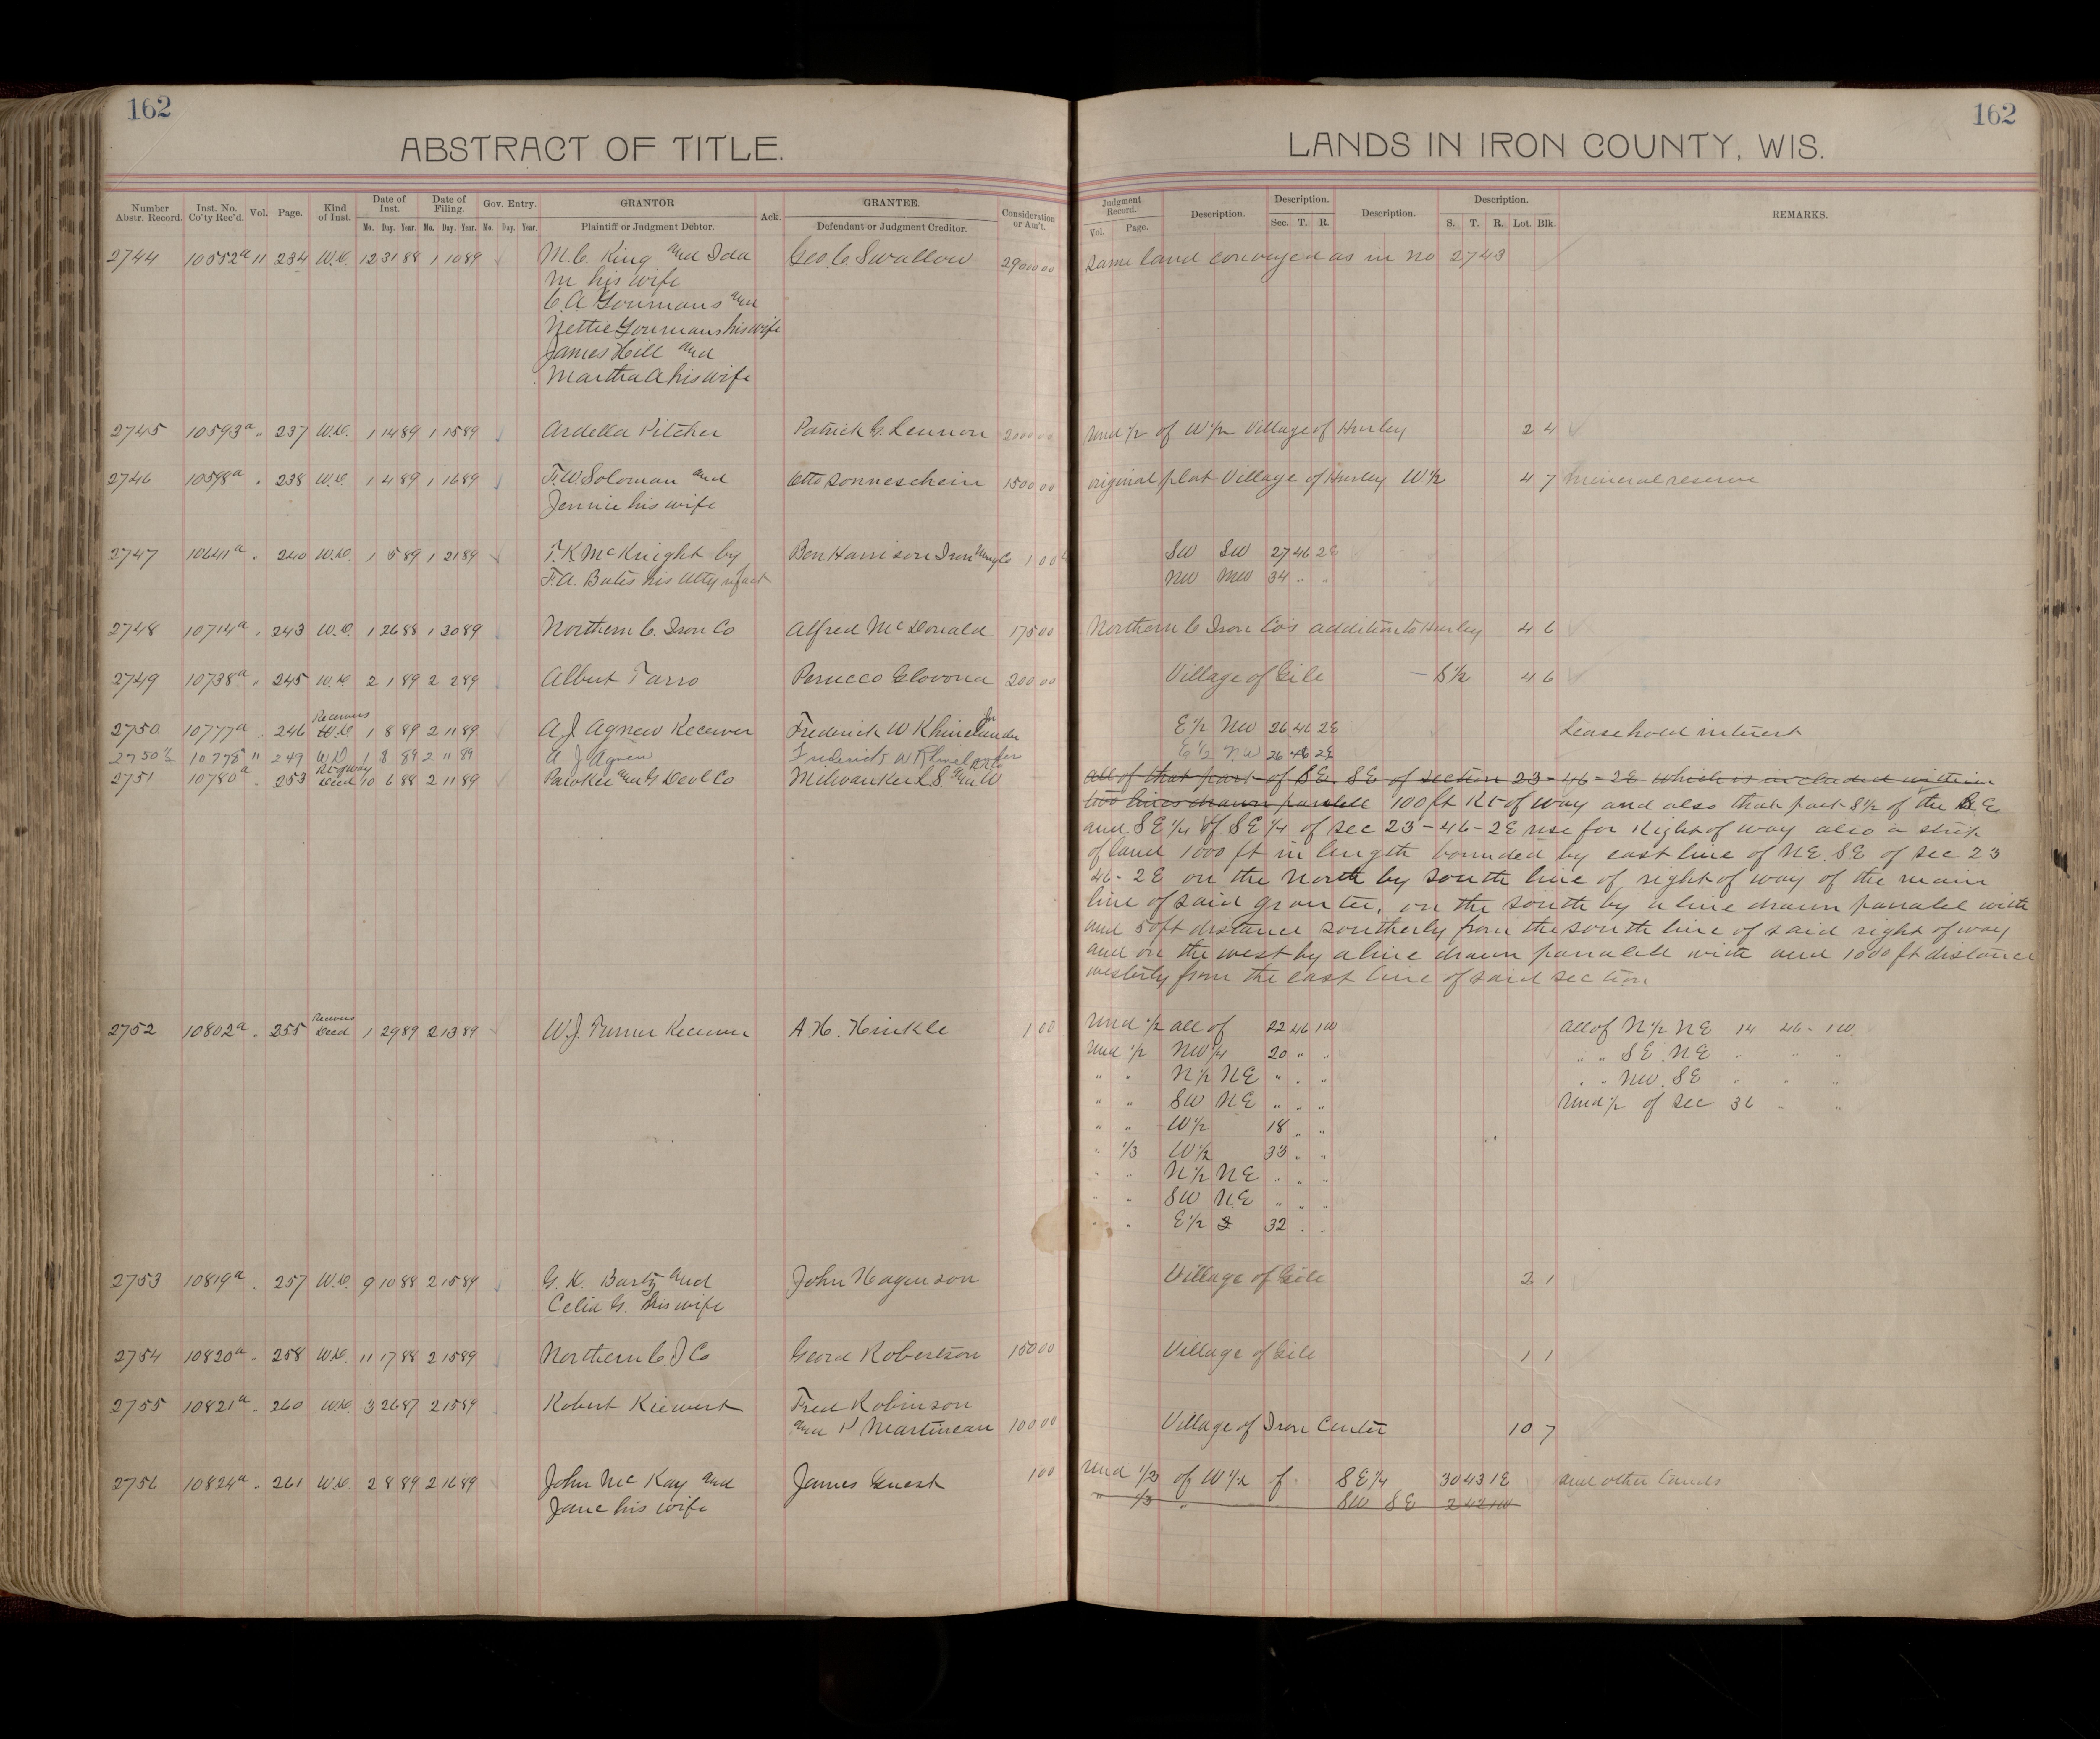 162
ABSTRACT OF TITLE.
Number Abstr. Record. Inst. No. Co'ty Rec'd. Vol. Page. Kind of Inst. Date of Inst. Date of Filing. Gov. Entry. GRANTOR Ack. GRANTEE. Consideration or Am't.
Mo. Day. Year. Mo. Day. Year. Mo. Day. Year. Plaintiff or Judgment Debtor. Defendant or Judgment Creditor.
2744 10552a 11 234 W.D. 12 31 88 1 10 89 M.C. King and Ida Geo. C. Swallow 2900000
M his wife
C.A. Youmans and
Nettie Youmans his wife
James Hill and
Martha A his wife
2745 10593a " 237 W.D. 1 14 89 1 15 89 Ardella Pitcher Patrick G. Lennon 200000
2746 10598a " 238 W.D. 1 4 89 1 16 89 F.W. Soloman and Otto Sonneschein 150000
Jennie his wife
2747 10641a " 240 W.D. 1 5 89 1 21 89 T.K. McKnight by Ben Harrison Iron Mng Co 100
F.A. Bates his atty in fact
2748 10714a " 243 W.D. 1 26 88 1 30 89 Northern C. Iron Co Alfred McDonald 17500
2749 10738a " 245 W.D. 2 1 89 2 2 89 Albert Tarro Perucco 20000
Receivers
2750 10777a " 246 W.D. 1 8 89 2 11 89 A.J. Agnew Receiver Frederick W Rhinelander Jr
2750½ 10778a " 249 W D 1 8 89 2 11 89 A J Agnew Frederick W Rhinelander
Rt of Way
2751 10780a " 253 Deed 10 6 88 2 11 89 Milwaukee L.S. and W
Receivers
2752 10802a " 255 Deed 1 29 89 2 13 89 W.J. Turner Receiver A.H. Hinkle 100
2753 10819a " 257 W.D. 9 10 88 2 15 89 G.K. Bartz and John Hagenson
Celia G. his wife
2754 10820a " 258 W.D. 11 17 88 2 15 89 Northern C. I Co Robertson 15000
2755 10821a " 260 W.D. 3 26 87 2 15 89 Robert Fred Robinson
and P Martineau 10000
2756 10824a " 261 W.D. 2 8 89 2 16 89 John McKay and James Guest 100
Jane his wife
162
LANDS IN IRON COUNTY, WIS.
Judgment Record. Description. Description. Description. Description. REMARKS.
Vol. Page. Sec. T. R. S. T. R. Lot. Blk.
Same land conveyed as in no 2743
Und ½ of W½ Village of Hurley 2 4
original plat Village of Hurley W½ 4 7 Mineral reserve
SW SW 27 46 2E
NW NW 34 " "
Northern C Iron Co's addition to Hurley 4 6
Village of Gile S½ 4 6
E½ NW 26 46 2E Leasehold interest
E½ NW 26 46 2E
all of that part of SE SE of section 23-46-2E which is included within
two lines drawn parallel 100 ft Rt of way and also that part S½ of the SE
and SE¼ of SE¼ of sec 23-46-2E use for Right of way also a strip
of land 1000 ft in length bounded by east line of NE SE of sec 23
46-2E on the North by South line of right of way of the main
line of said grantee, on the south by a line drawn parallel with
and 50ft distance southerly from the south line of said right of way
and on the west by a line drawn parallel with and 1000 ft distance
westerly from the east line of said section
Und ½ all of 22 46 1W all of N½ NE 14 46-1W
Und ½ NW¼ 20 " " " " SE NE " " "
" " N½ NE " " " " " NW SE " " "
" " SW NE " " " Und ½ of Sec 36 " "
" " W½ 18 " "
" 1/3 W½ 33 " "
" " N½ NE " " "
" " SW NE " " "
" " E½ 32 " "
Village of Gile 2 1
Village of Gile 1 1
Village of Iron Center 10 7
Und 1/3 of W½ of SE¼ 30 43 1E and other lands
" 1/3 " SW SE 2 42 1W